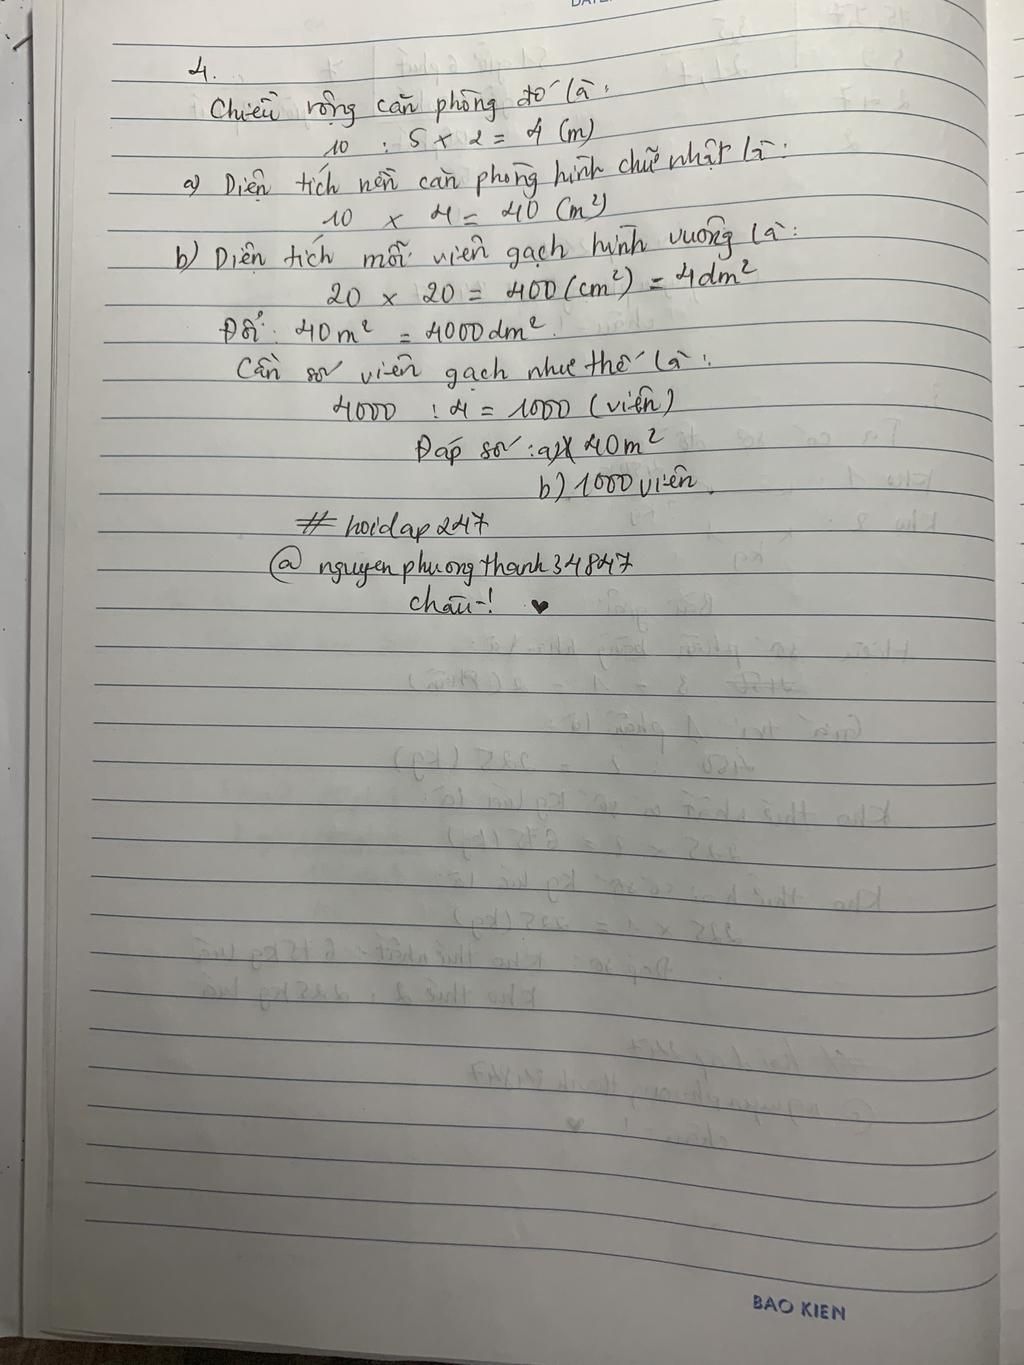 4.
Chiều rộng căn phòng đó là:
10 : 5 x 2 = 4 (m)
a) Diện tích nền căn phòng hình chữ nhật là:
10 x 4 = 40 (m²)
b) Diện tích mỗi viên gạch hình vuông là:
20 x 20 = 400 (cm²) = 4dm²
Đổi: 40m² = 4000dm².
Cần số viên gạch như thế là:
4000 : 4 = 1000 (viên)
Đáp số: a) 40m²
b) 1000 viên.
# hoidap247
@ nguyenphuongthanh34847
BAO KIEN